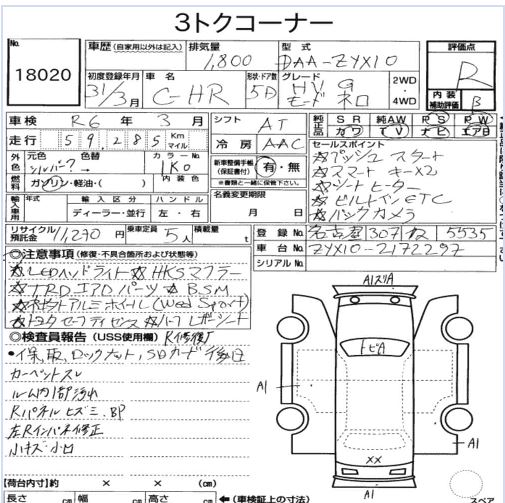 3トクコーナー
No.
18020
車歴(自家用以外は記入)
排気量 1,800
型式 DAA-ZYX10
評価点 R
初度登録年月 31/3月
車名 C-HR
形状・ドア数 5D
グレード HV G モード ネロ
2WD・4WD
内装補助評価 B
車検 R6年3月
シフト AT
純正品 SR 純AW PS PW
カワ TV ナビ エアB
走行 59,285 Km マイル
冷房 AAC
セールスポイント
☆プッシュスタート
☆スマートキー×2
☆シートヒーター
☆ビルトインETC
☆バックカメラ
外色 元色 シルバー? 色替 → カラーNo. 1K0
新車整備手帳(保証書付) 有・無
※書類と一緒に保管下さい。
燃料 ガソリン・軽油・( ) 内装色
輸入車用 年式 輸入区分 ディーラー・並行 ハンドル 左・右
名義変更期限 月 日
リサイクル預託金 11,290円 乗車定員 5人 積載量 t
登録No. 名古屋 307 5535
車台No. ZYX10-2172297
シリアルNo.
◎注意事項(修復・不具合箇所および状態等)
☆LEDヘッドライト ☆HKSマフラー
☆TRDエアロパーツ ☆BSM
☆社外アルミホイール(Wed Sport)
☆トヨタセーフティセンス ☆ハーフレザーシート
◎検査員報告(USS使用欄) R修復了
・保、取、ロックナット、SDカード後日
カーペットスレ
ルーム内1部汚れ
Rパネルヒズミ、BP
左Rインパネ修正
小キズ・小凹
A1スリA
トビA
A1
A1
××
A1
スペア
【荷台内寸】約 × × (cm)
長さ cm 幅 cm 高さ cm ←(車検証上の寸法)